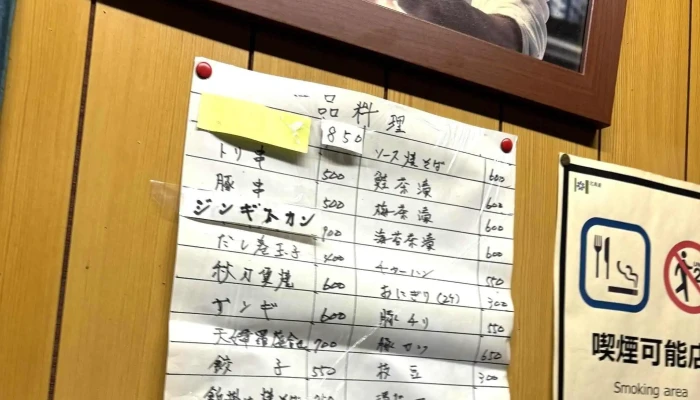 一品料理
850
トリ串 500
豚串 500
ジンギスカン 900
だし巻玉子 400
秋刀魚焼 600
ザンギ 600
天婦羅盛合 700
餃子 550
ソース焼そば 600
鮭茶漬 600
梅茶漬 600
海苔茶漬 600
チャーハン 550
おにぎり(2ケ) 300
豚チリ 550
豚カツ 650
枝豆 300
喫煙可能店
Smoking area